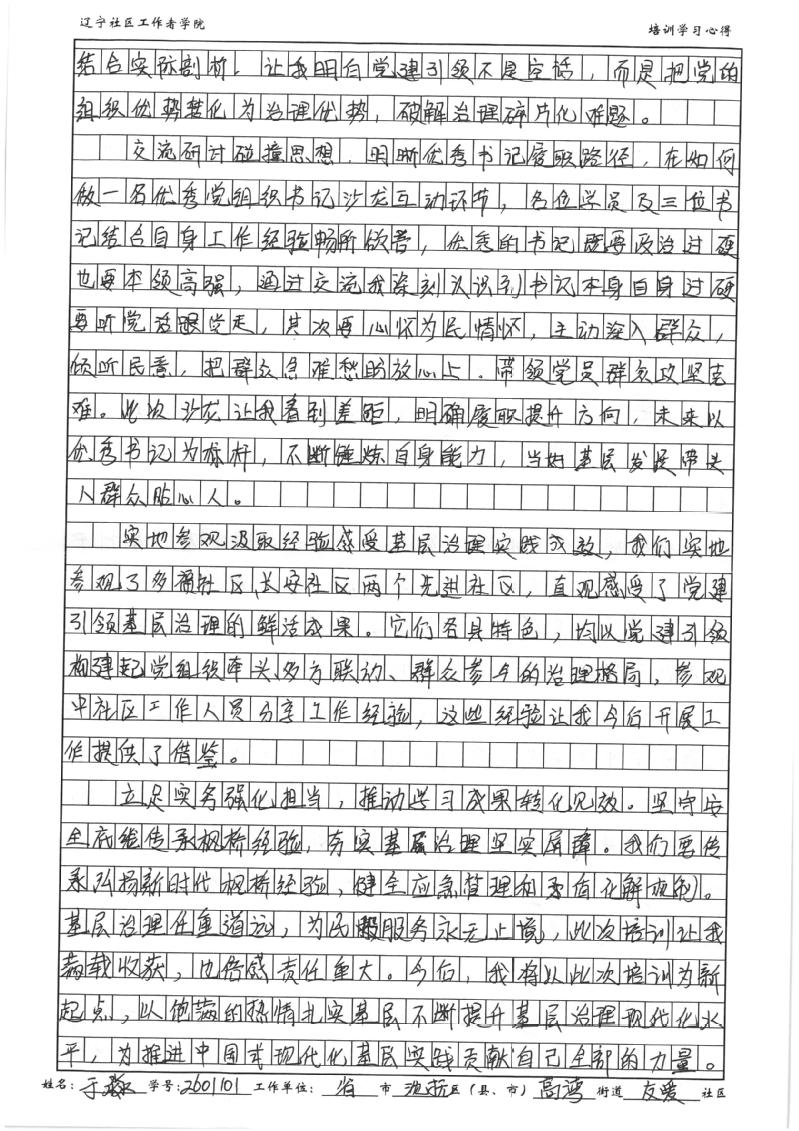 辽宁社区工作者学院
培训学习心得
结合实际剖析，让我明白党建引领不是空话，而是把党的
组织优势转化为治理优势，破解治理碎片化难题。
交流研讨碰撞思想，明晰优秀书记履职路径，在如何
做一名优秀党组织书记沙龙互动环节，各位学员及三位书
记结合自身工作经验畅所欲言，优秀的书记既要政治过硬
也要本领高强，通过交流我深刻认识到书记本身自身过硬
要听党话跟党走，其次要心怀为民情怀，主动深入群众，
倾听民意，把群众急难愁盼放心上，带领党员群众攻坚克
难。此次沙龙让我看到差距，明确履职提升方向，未来以
优秀书记为标杆，不断锤炼自身能力，当好基层发展带头
人群众贴心人。
实地参观汲取经验感受基层治理实践成效，我们实地
参观了多福社区、长安社区两个先进社区，直观感受了党建
引领基层治理的鲜活成果。它们各具特色，均以党建引领
构建起党组织牵头、多方联动、群众参与的治理格局，参观
中社区工作人员分享工作经验，这些经验让我今后开展工
作提供了借鉴。
立足实务强化担当，推动学习成果转化见效。坚守安
全底线传承枫桥经验，夯实基层治理坚实屏障。我们要传
承弘扬新时代枫桥经验，健全应急管理和矛盾化解机制。
基层治理任重道远，为民服务永无止境，此次培训让我
满载收获，也倍感责任重大。今后，我将以此次培训为新
起点，以饱满的热情扎实基层不断提升基层治理现代化水
平，为推进中国式现代化基层实践贡献自己全部的力量。
姓名：于 学号：2601101 工作单位： 省 市 区（县、市）高湾 街道 友爱 社区